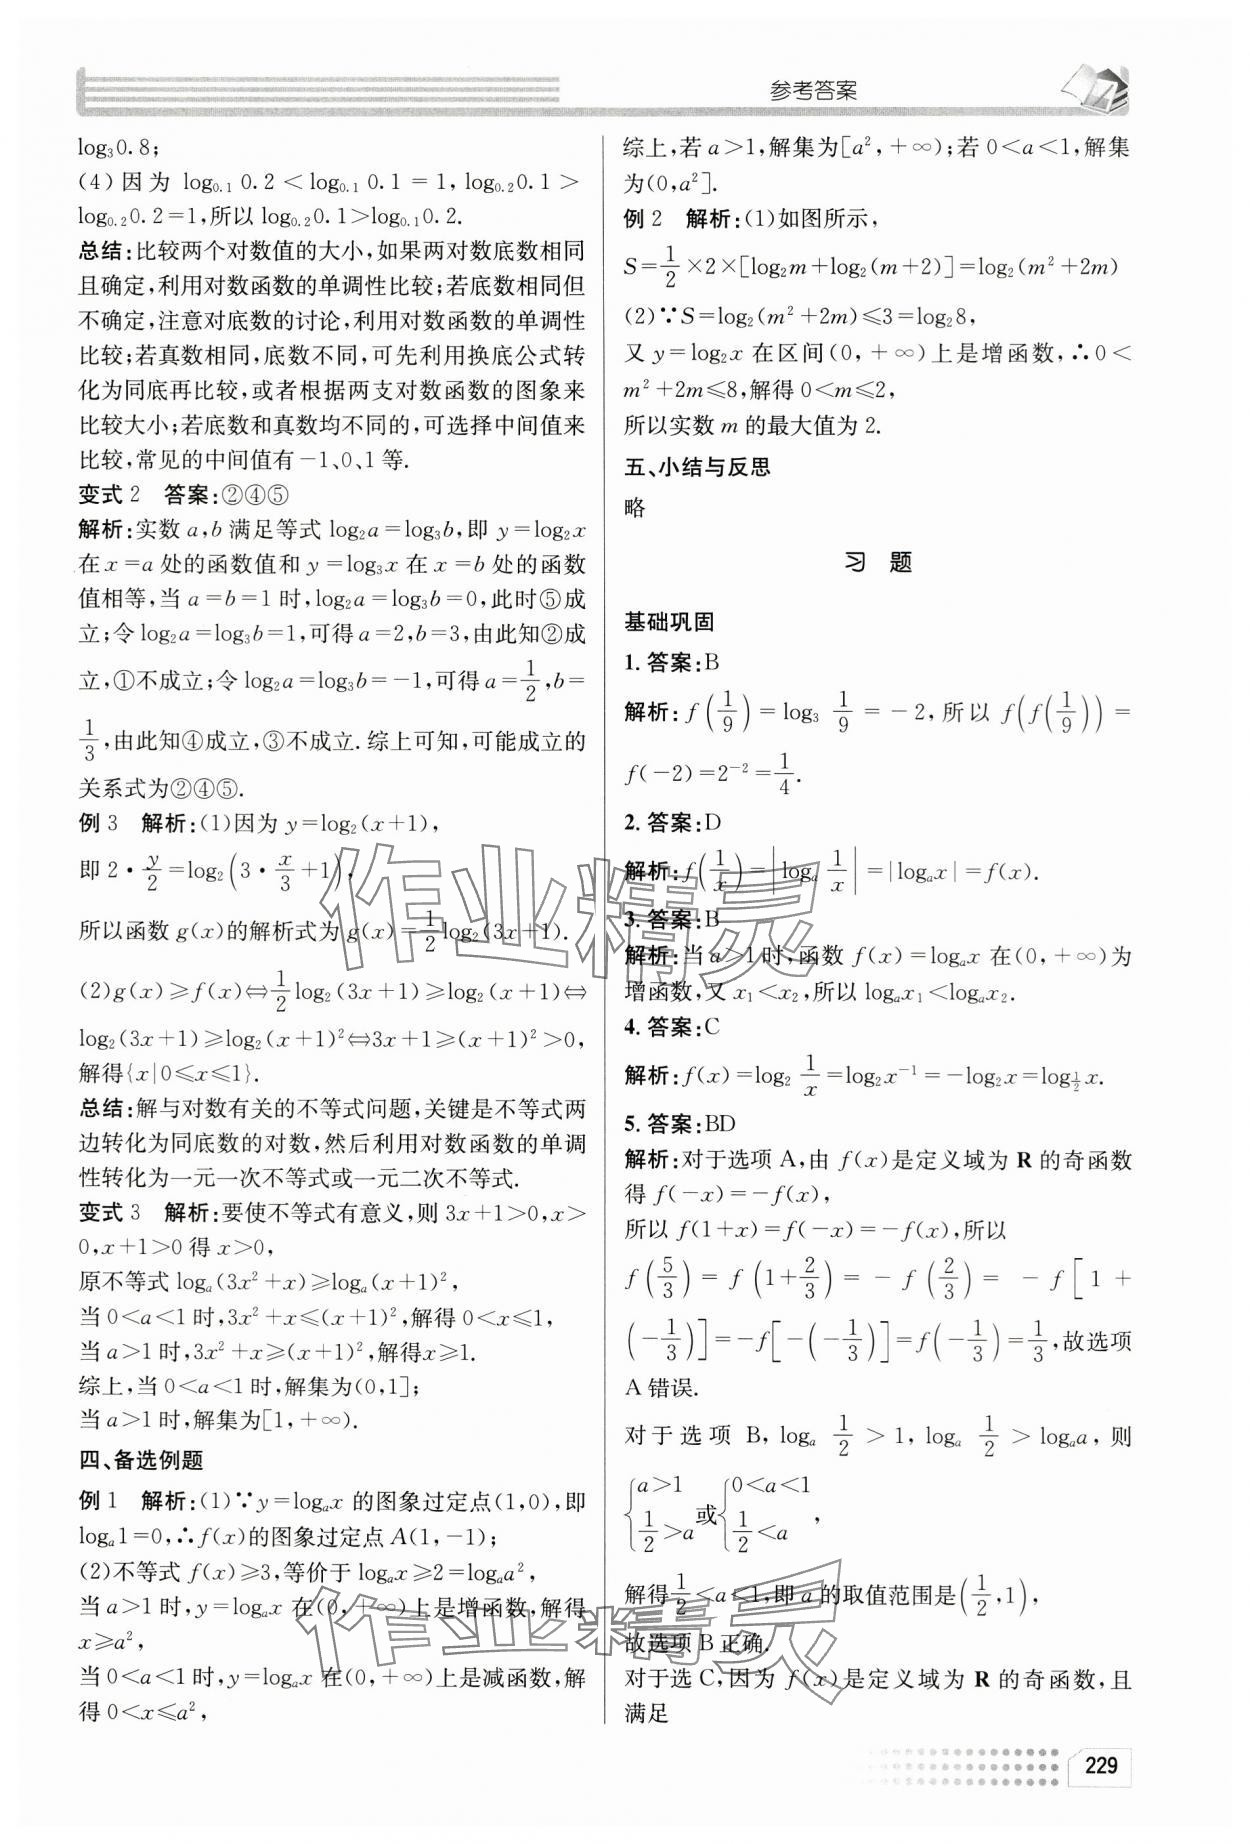 参考答案
log₃0.8;
(4)因为 log₀.₁0.2<log₀.₁0.1=1,log₀.₂0.1>
log₀.₂0.2=1,所以 log₀.₂0.1>log₀.₁0.2.
总结:比较两个对数值的大小,如果两对数底数相同
且确定,利用对数函数的单调性比较;若底数相同但
不确定,注意对底数的讨论,利用对数函数的单调性
比较;若真数相同,底数不同,可先利用换底公式转
化为同底再比较,或者根据两支对数函数的图象来
比较大小;若底数和真数均不同的,可选择中间值来
比较,常见的中间值有-1、0、1等.
变式2 答案:②④⑤
解析:实数 a,b 满足等式 log₂a=log₃b,即 y=log₂x
在 x=a 处的函数值和 y=log₃x 在 x=b 处的函数
值相等,当 a=b=1 时,log₂a=log₃b=0,此时⑤成
立;令 log₂a=log₃b=1,可得 a=2,b=3,由此知②成
立,①不成立;令 log₂a=log₃b=-1,可得 a=1/2,b=
1/3,由此知④成立,③不成立.综上可知,可能成立的
关系式为②④⑤.
例3 解析:(1)因为 y=log₂(x+1),
即 2·y/2=log₂(3·x/3+1),
所以函数 g(x)的解析式为 g(x)=1/2log₂(3x+1).
(2)g(x)≥f(x)⇔1/2log₂(3x+1)≥log₂(x+1)⇔
log₂(3x+1)≥log₂(x+1)²⇔3x+1≥(x+1)²>0,
解得{x|0≤x≤1}.
总结:解与对数有关的不等式问题,关键是不等式两
边转化为同底数的对数,然后利用对数函数的单调
性转化为一元一次不等式或一元二次不等式.
变式3 解析:要使不等式有意义,则 3x+1>0,x>
0,x+1>0 得 x>0,
原不等式 logₐ(3x²+x)≥logₐ(x+1)²,
当 0<a<1 时,3x²+x≤(x+1)²,解得 0<x≤1,
当 a>1 时,3x²+x≥(x+1)²,解得x≥1.
综上,当 0<a<1 时,解集为(0,1];
当 a>1 时,解集为[1,+∞).
四、备选例题
例1 解析:(1)∵y=logₐx 的图象过定点(1,0),即
logₐ1=0,∴f(x)的图象过定点 A(1,-1);
(2)不等式 f(x)≥3,等价于 logₐx≥2=logₐa²,
当 a>1 时,y=logₐx 在(0,+∞)上是增函数,解得
x≥a²,
当 0<a<1 时,y=logₐx 在(0,+∞)上是减函数,解
得 0<x≤a²,
综上,若 a>1,解集为[a²,+∞);若 0<a<1,解集
为(0,a²].
例2 解析:(1)如图所示,
S=1/2×2×[log₂m+log₂(m+2)]=log₂(m²+2m)
(2)∵S=log₂(m²+2m)≤3=log₂8,
又 y=log₂x 在区间(0,+∞)上是增函数,∴0<
m²+2m≤8,解得 0<m≤2,
所以实数 m 的最大值为 2.
五、小结与反思
略
习 题
基础巩固
1.答案:B
解析:f(1/9)=log₃ 1/9=-2,所以 f(f(1/9))=
f(-2)=2⁻²=1/4.
2.答案:D
解析:f(1/x)=|logₐ 1/x|=|logₐx|=f(x).
3.答案:B
解析:当 a>1时,函数 f(x)=logₐx 在(0,+∞)为
增函数,又 x₁<x₂,所以 logₐx₁<logₐx₂.
4.答案:C
解析:f(x)=log₂ 1/x=log₂x⁻¹=-log₂x=log_{1/2}x.
5.答案:BD
解析:对于选项 A,由 f(x)是定义域为 R 的奇函数
得 f(-x)=-f(x),
所以 f(1+x)=f(-x)=-f(x),所以
f(5/3)=f(1+2/3)=-f(2/3)=-f[1+
(-1/3)]=-f[-(-1/3)]=f(-1/3)=1/3,故选项
A 错误.
对于选项 B,logₐ 1/2>1,logₐ 1/2>logₐa,则
{a>1, 1/2>a 或{0<a<1, 1/2<a,
解得1/2<a<1,即 a 的取值范围是(1/2,1),
故选项 B 正确.
对于选 C,因为 f(x)是定义域为 R 的奇函数,且
满足
229
作业精灵
作业精灵